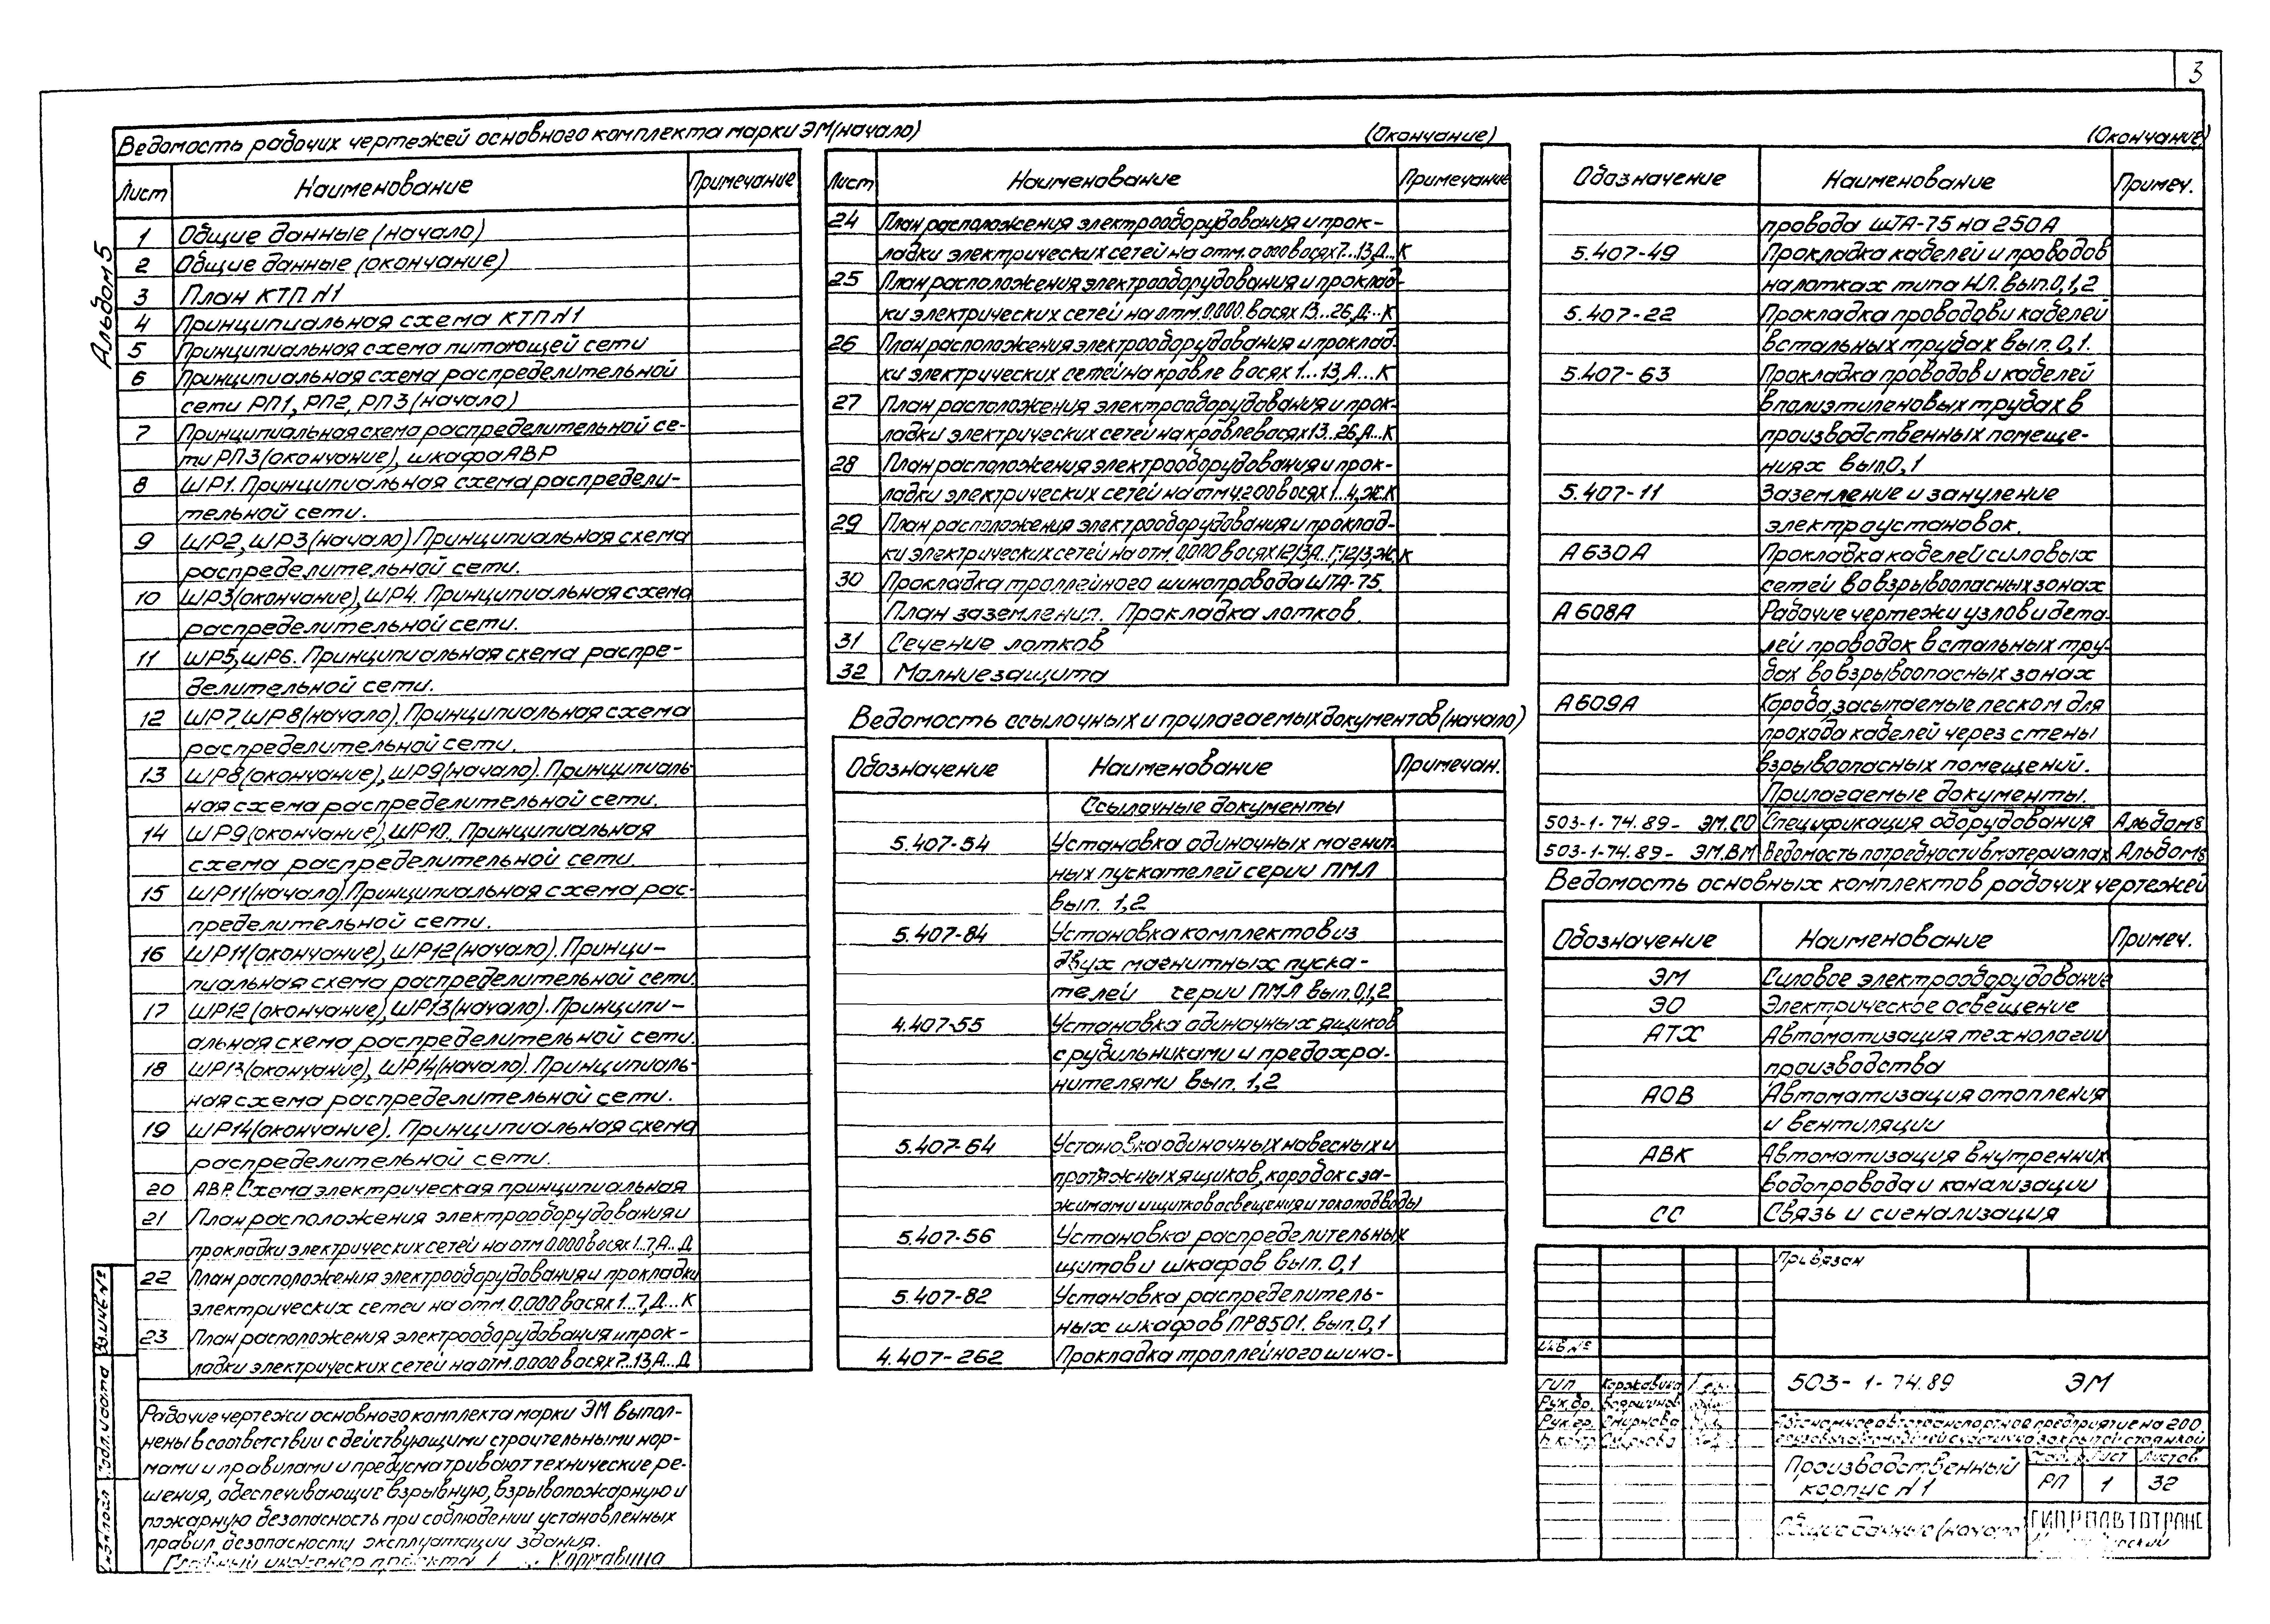 3
Альбом 5
Ведомость рабочих чертежей основного комплекта марки ЭМ (начало)
Лист Наименование Примечание
1 Общие данные (начало)
2 Общие данные (окончание)
3 План КТП N1
4 Принципиальная схема КТП N1
5 Принципиальная схема питающей сети
6 Принципиальная схема распределительной
сети РП1, РП2, РП3 (начало)
7 Принципиальная схема распределительной се-
ти РП3 (окончание), шкафа АВР
8 ШР1. Принципиальная схема распредели-
тельной сети.
9 ШР2, ШР3 (начало) Принципиальная схема
распределительной сети.
10 ШР3 (окончание), ШР4. Принципиальная схема
распределительной сети.
11 ШР5, ШР6. Принципиальная схема распре-
делительной сети.
12 ШР7, ШР8 (начало). Принципиальная схема
распределительной сети.
13 ШР8 (окончание), ШР9 (начало). Принципиаль-
ная схема распределительной сети.
14 ШР9 (окончание), ШР10. Принципиальная
схема распределительной сети.
15 ШР11 (начало). Принципиальная схема рас-
пределительной сети.
16 ШР11 (окончание), ШР12 (начало). Принци-
пиальная схема распределительной сети.
17 ШР12 (окончание), ШР13 (начало). Принципи-
альная схема распределительной сети.
18 ШР13 (окончание), ШР14 (начало). Принципиаль-
ная схема распределительной сети.
19 ШР14 (окончание). Принципиальная схема
распределительной сети.
20 АВР. Схема электрическая принципиальная
21 План расположения электрооборудования и
прокладки электрических сетей на отм 0.000 в осях 1..7, А...Д
22 План расположения электрооборудования и прокладки
электрических сетей на отм. 0.000 в осях 1..7, Д...К
23 План расположения электрооборудования и прок-
ладки электрических сетей на отм. 0.000 в осях 7..13, А...Д
Рабочие чертежи основного комплекта марки ЭМ выпол-
нены в соответствии с действующими строительными нор-
мами и правилами и предусматривают технические ре-
шения, обеспечивающие взрывную, взрывопожарную и
пожарную безопасность при соблюдении установленных
правил безопасности эксплуатации здания.
Главный инженер проекта Коржавина
(Окончание)
Лист Наименование Примечание
24 План расположения электрооборудования и прок-
ладки электрических сетей на отм. 0.000 в осях 7...13, Д...К
25 План расположения электрооборудования и проклад-
ки электрических сетей на отм. 0.000. в осях 13...26, Д...К
26 План расположения электрооборудования и проклад-
ки электрических сетей на кровле в осях 1...13, А...К
27 План расположения электрооборудования и прок-
ладки электрических сетей на кровле в осях 13..26, А...К
28 План расположения электрооборудования и прок-
ладки электрических сетей на отм 4.200 в осях 1...4, Ж.К
29 План расположения электрооборудования и проклад-
ки электрических сетей на отм. 0.000 в осях
30 Прокладка троллейного шинопровода ШТА-75.
План заземления. Прокладка лотков.
31 Сечение лотков
32 Молниезащита
Ведомость ссылочных и прилагаемых документов (начало)
Обозначение Наименование Примечан.
Ссылочные документы
5.407-54 Установка одиночных магнит-
ных пускателей серии ПМЛ
вып. 1,2
5.407-84 Установка комплектов из
двух магнитных пуска-
телей серии ПМЛ вып. 0,1,2
4.407-55 Установка одиночных ящиков
с рубильниками и предохра-
нителями вып. 1,2
5.407-64 Установка одиночных навесных и
протяжных ящиков, коробок с за-
жимами и щитков освещения и токоподводы
5.407-56 Установка распределительных
щитов и шкафов вып. 0,1
5.407-82 Установка распределитель-
ных шкафов ПР8501. вып. 0,1
4.407-262 Прокладка троллейного шино-
(Окончание)
Обозначение Наименование Примеч.
провода ШТА-75 на 250А
5.407-49 Прокладка кабелей и проводов
на лотках типа НЛ. вып. 0,1,2
5.407-22 Прокладка проводов и кабелей
в стальных трубах вып. 0,1.
5.407-63 Прокладка проводов и кабелей
в полиэтиленовых трубах в
производственных помеще-
ниях вып. 0,1
5.407-11 Заземление и зануление
электроустановок.
А630А Прокладка кабелей силовых
сетей во взрывоопасных зонах
А608А Рабочие чертежи узлов и дета-
лей проводок в стальных тру-
бах во взрывоопасных зонах
А609А Короба, засыпаемые песком для
прохода кабелей через стены
взрывоопасных помещений.
Прилагаемые документы.
503-1-74.89- ЭМ.СО Спецификация оборудования Альбом 8
503-1-74.89- ЭМ.ВМ Ведомость потребности в материалах Альбом 8
Ведомость основных комплектов рабочих чертежей
Обозначение Наименование Примеч.
ЭМ Силовое электрооборудование
ЭО Электрическое освещение
АТХ Автоматизация технологии
производства
АОВ Автоматизация отопления
и вентиляции
АВК Автоматизация внутренних
водопровода и канализации
СС Связь и сигнализация
Привязан
Инв №
503-1-74.89 ЭМ
ГИП Коржавина
Рук. бр.
Рук. гр. Смирнова
Н. контр Смирнова
Автономное автотранспортное предприятие на 200
грузовых автомобилей с частично закрытой стоянкой
Производственный
корпус N1
Лист Листов
РП 1 32
Общие данные (начало)
ГИПРОАВТОТРАНС
Взам.инв №
Подп. и дата
Инв.№ подл